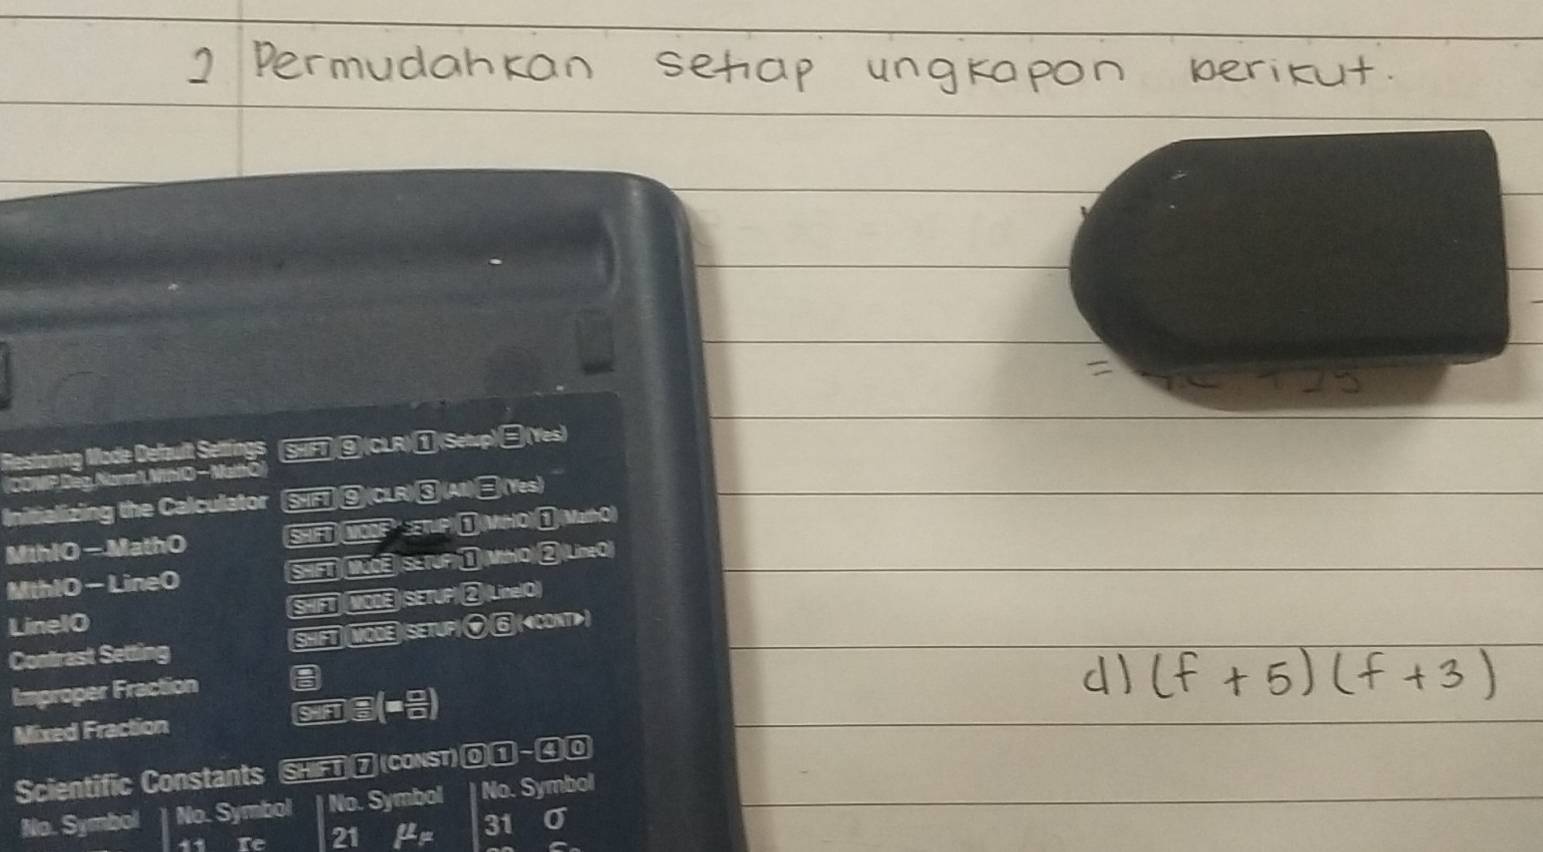 2 Permudahkan setiap ungkapon berikut.
=
d) (f + 5) (f + 3)
Restoring Mode Default Settings SHIFT 9 (CLR) 1 (Setup) = (Yes)
(COMP, Deg, Norm1, MthIO-MathO)
Initializing the Calculator SHIFT 9 (CLR) 3 (All) = (Yes)
MthIO - MathO SHIFT MODE (SETUP) 1 (MthIO) 1 (MathO)
MthIO - LineO SHIFT MODE (SETUP) 1 (MthIO) 2 (LineO)
LineIO SHIFT MODE (SETUP) 2 (LineIO)
Contrast Setting SHIFT MODE (SETUP) ▼ 6 (◄CONT►)
Improper Fraction
Mixed Fraction SHIFT
Scientific Constants SHIFT 7 (CONST) 0 1 ~ 4 0
No. Symbol No. Symbol No. Symbol No. Symbol
11 re 21 μμ 31 σ